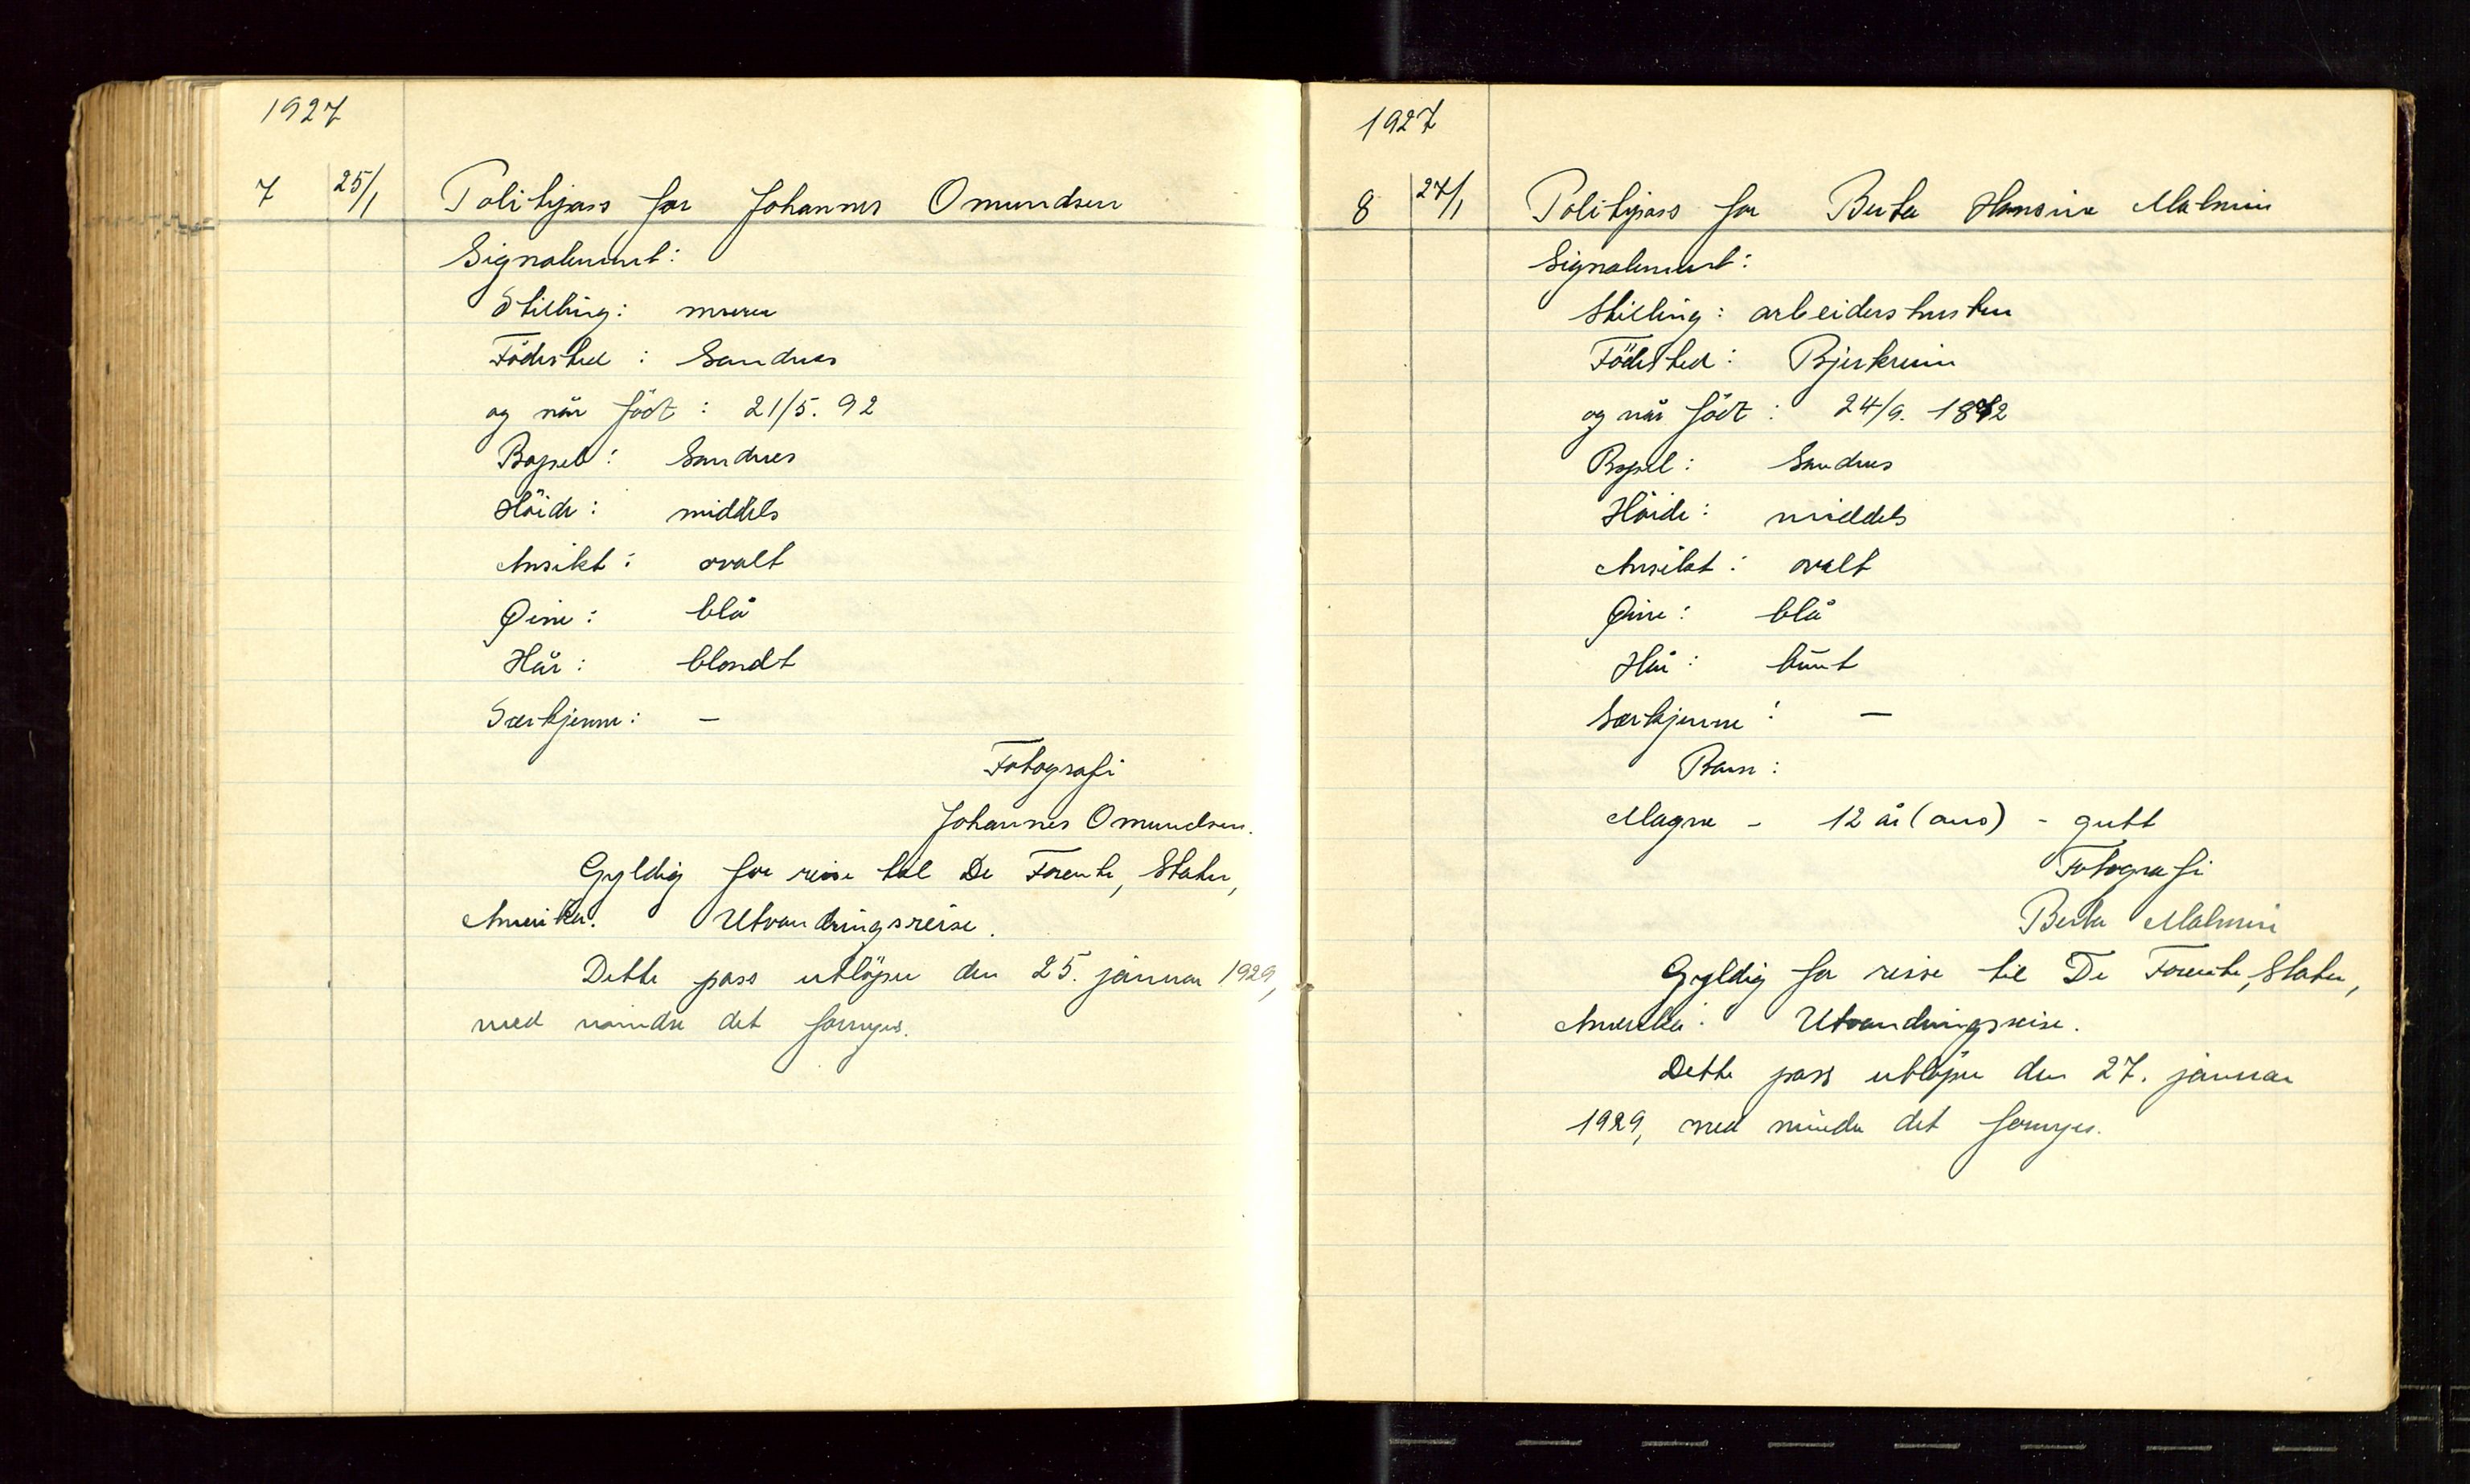 1927
7 25/1 Politipass for Johannes Omundsen
Signalement:
Stilling: murer
Födested : Sandnes
og når födt : 21/5. 92
Bopel: Sandnes
Höide: middels
Ansikt: ovalt
Øine: blå
Hår: blondt
Særkjenne: —
Fotografi
Johannes Omundsen.
Gyldig for reise til De Forente, Stater,
Amerika. Utvandringsreise.
Dette pass utlöper den 25. januar 1929,
med mindre det fornyes.
1927
8 27/1 Politipass for Berta Hansine Malmin
Signalement:
Stilling: arbeidershustru
Födested: Bjerkreim
og når födt: 24/9.
Bopel: Sandnes
Höide: middels
Ansikt: ovalt
Øine: blå
Hår: brunt
Særkjenne: —
Barn:
Magne - 12 år (aus) - gutt
Fotografi
Berta Malmin
Gyldig for reise til De Forente, Stater,
Amerika. Utvandringsreise.
Dette pass utlöper den 27. januar
1929, med mindre det fornyes.